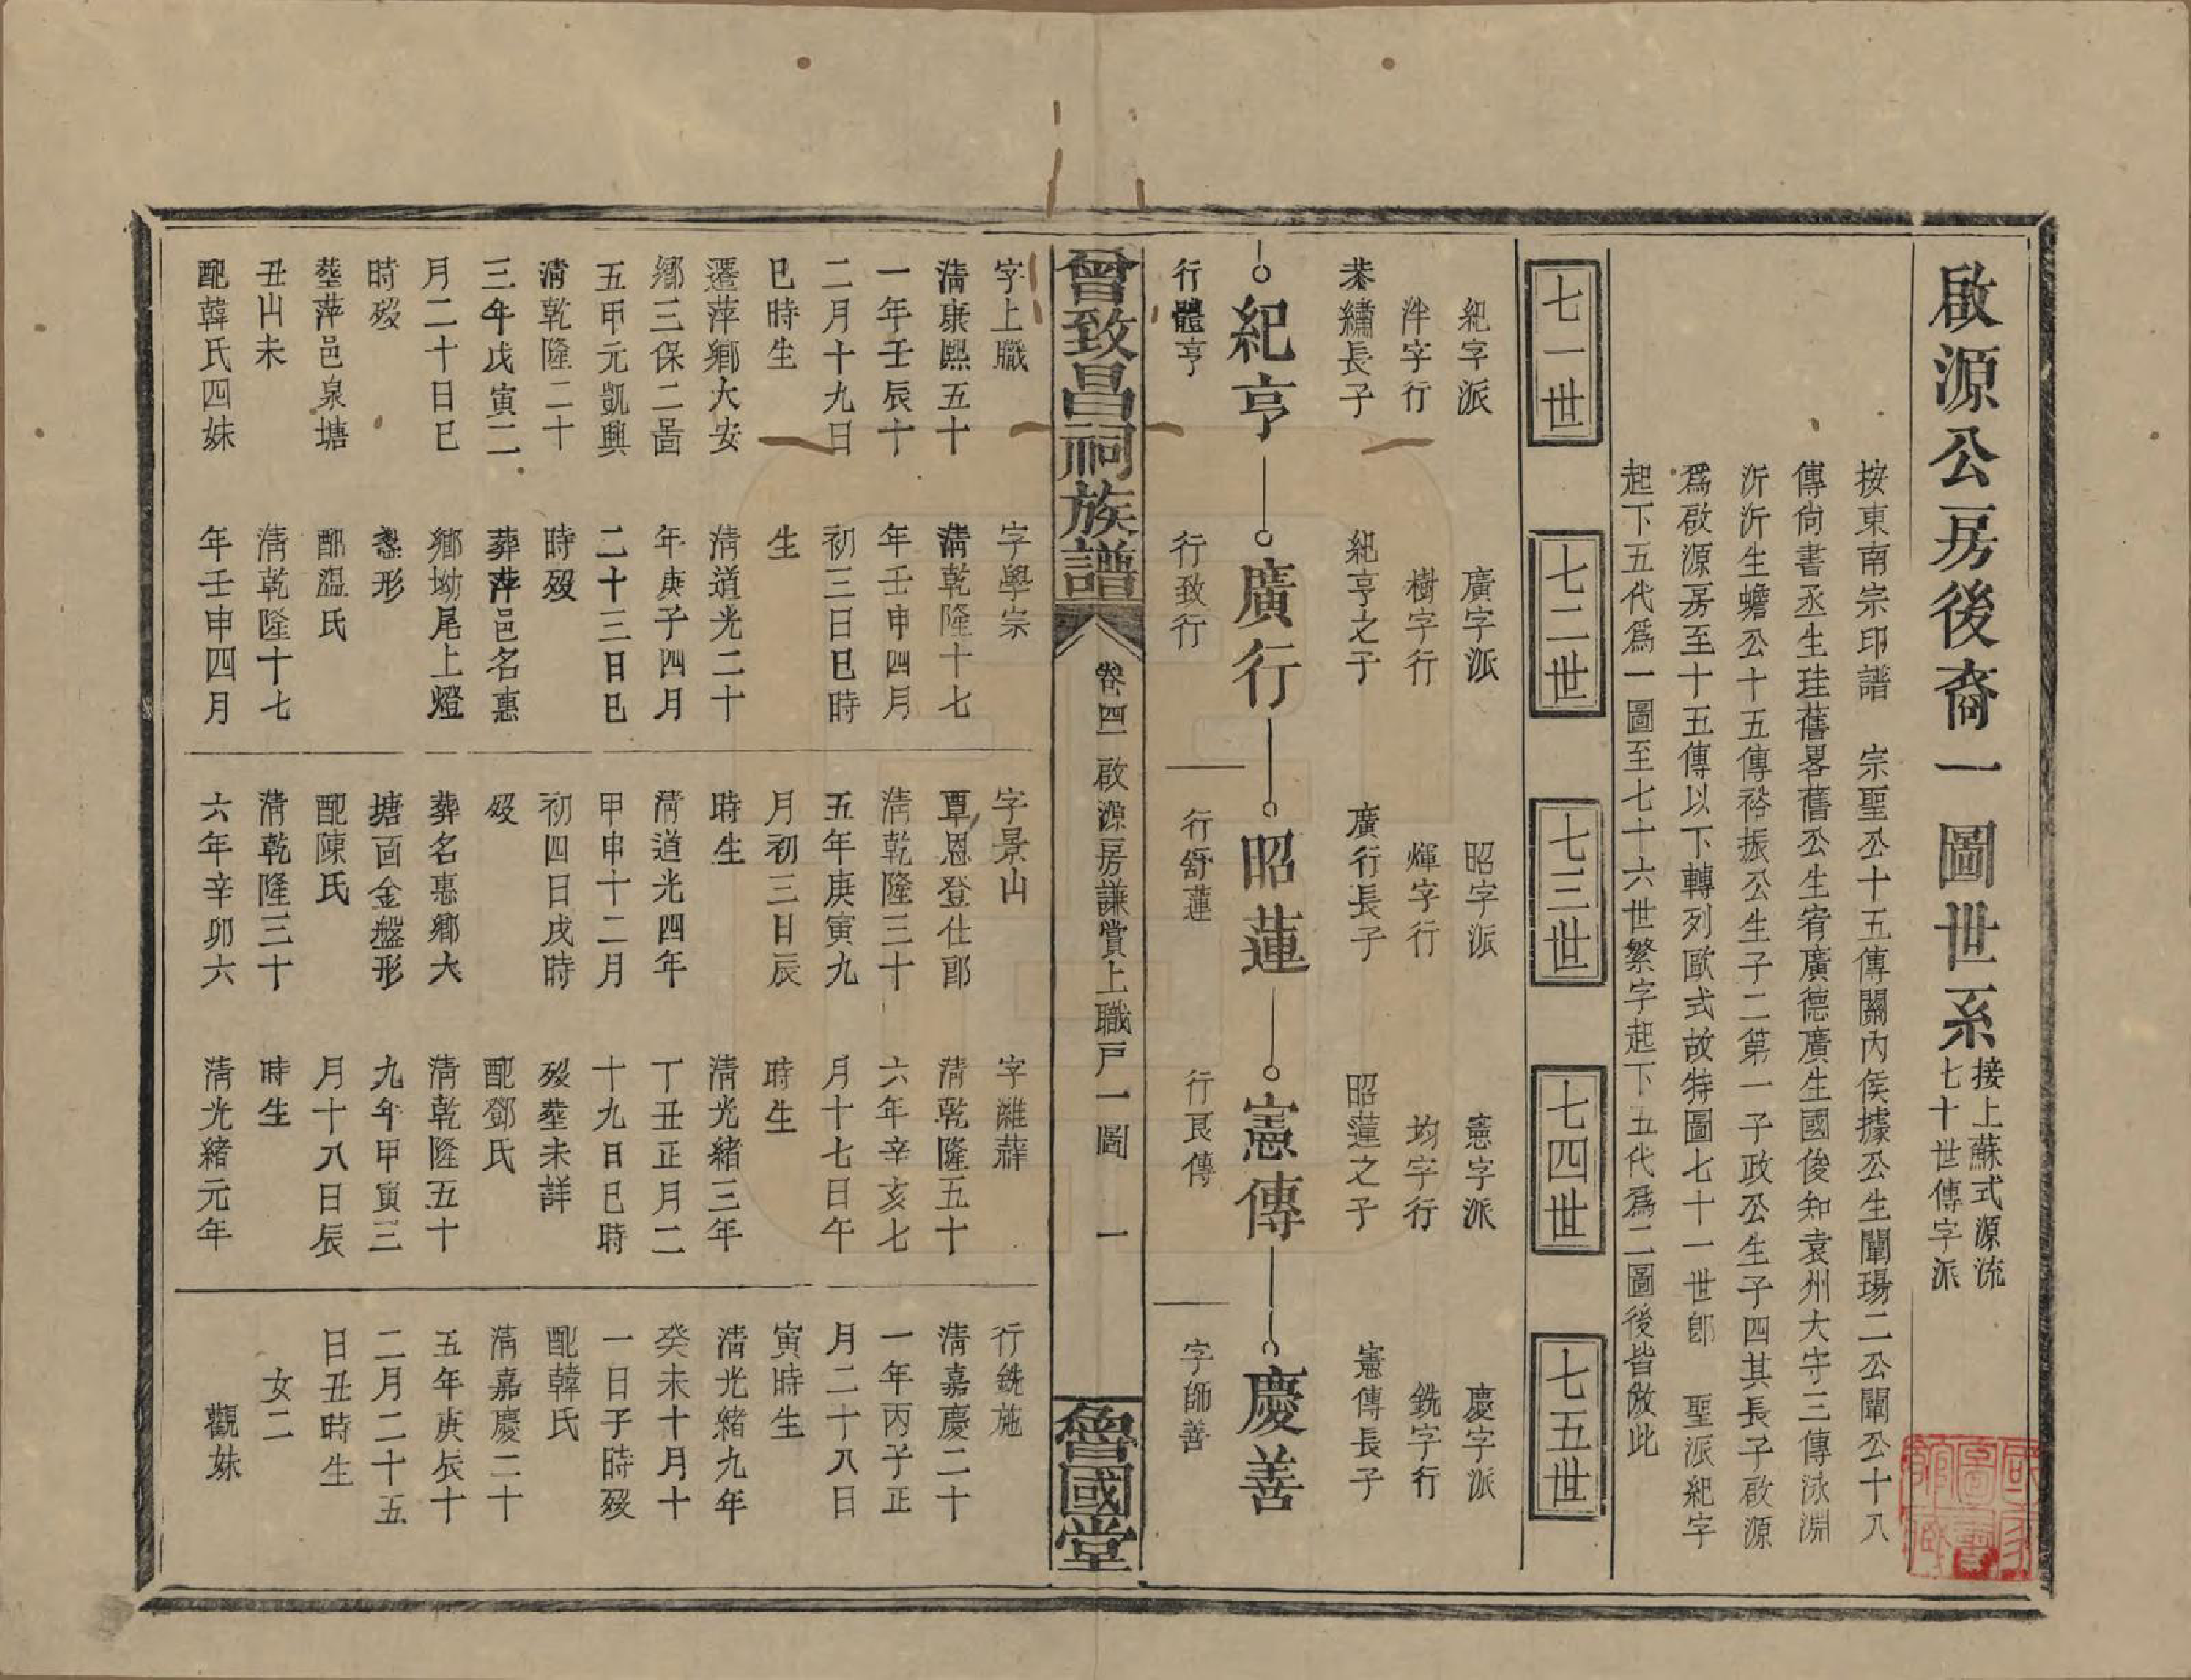 啟源公房後裔一圖世系
接上蘇式源流
七十世傳字派
按東南宗印譜　宗聖公十五傳關內侯據公生闡瑒二公闡公十八
傳尙書丞生珪舊畧舊公生宥廣德廣生國俊知袁州大守三傳泳淵
沂沂生蟾公十五傳裕振公生子二第一子政公生子四其長子啟源
爲啟源房至十五傳以下轉列歐式故特圖七十一世卽　聖派紀字
起下五代爲一圖至七十六世繁字起下五代爲二圖後皆倣此
七一世
七二世
七三世
七四世
七五世
紀字派
泮字行
恭繡長子
紀亨
行體亨
廣字派
樹字行
紀亨之子
廣行
行致行
昭字派
煇字行
廣行長子
昭蓮
行舒蓮
憲字派
均字行
昭蓮之子
憲傳
行良傳
慶字派
銑字行
憲傳長子
慶善
字師善
曾致昌祠族譜
卷四　啟源房謙賞上職戸一圖　一
魯國堂
字上職
淸康熙五十
一年壬辰十
二月十九日
巳時生
遷萍鄉大安
鄉三保二啚
五甲元凱興
淸乾隆二十
三年戊寅二
月二十日巳
時歿
塟萍邑泉塘
丑山未
配韓氏四妹
字學宗
淸乾隆十七
年壬申四月
初三日巳時
生
淸道光二十
年庚子四月
二十三日巳
時歿
葬萍邑名惠
鄉坳尾上燈
盞形
配溫氏
淸乾隆十七
年壬申四月
字景山
覃恩登仕郎
淸乾隆三十
五年庚寅九
月初三日辰
時生
淸道光四年
甲申十二月
初四日戌時
歿
葬名惠鄉大
塘面金盤形
配陳氏
淸乾隆三十
六年辛卯六
字濰薜
淸乾隆五十
六年辛亥七
月十七日午
時生
淸光緒三年
丁丑正月二
十九日巳時
歿塟未詳
配鄧氏
淸乾隆五十
九年甲寅三
月十八日辰
時生
淸光緒元年
行銑施
淸嘉慶二十
一年丙子正
月二十八日
寅時生
淸光緒九年
癸未十月十
一日子時歿
配韓氏
淸嘉慶二十
五年庚辰十
二月二十五
日丑時生
女二
觀妹